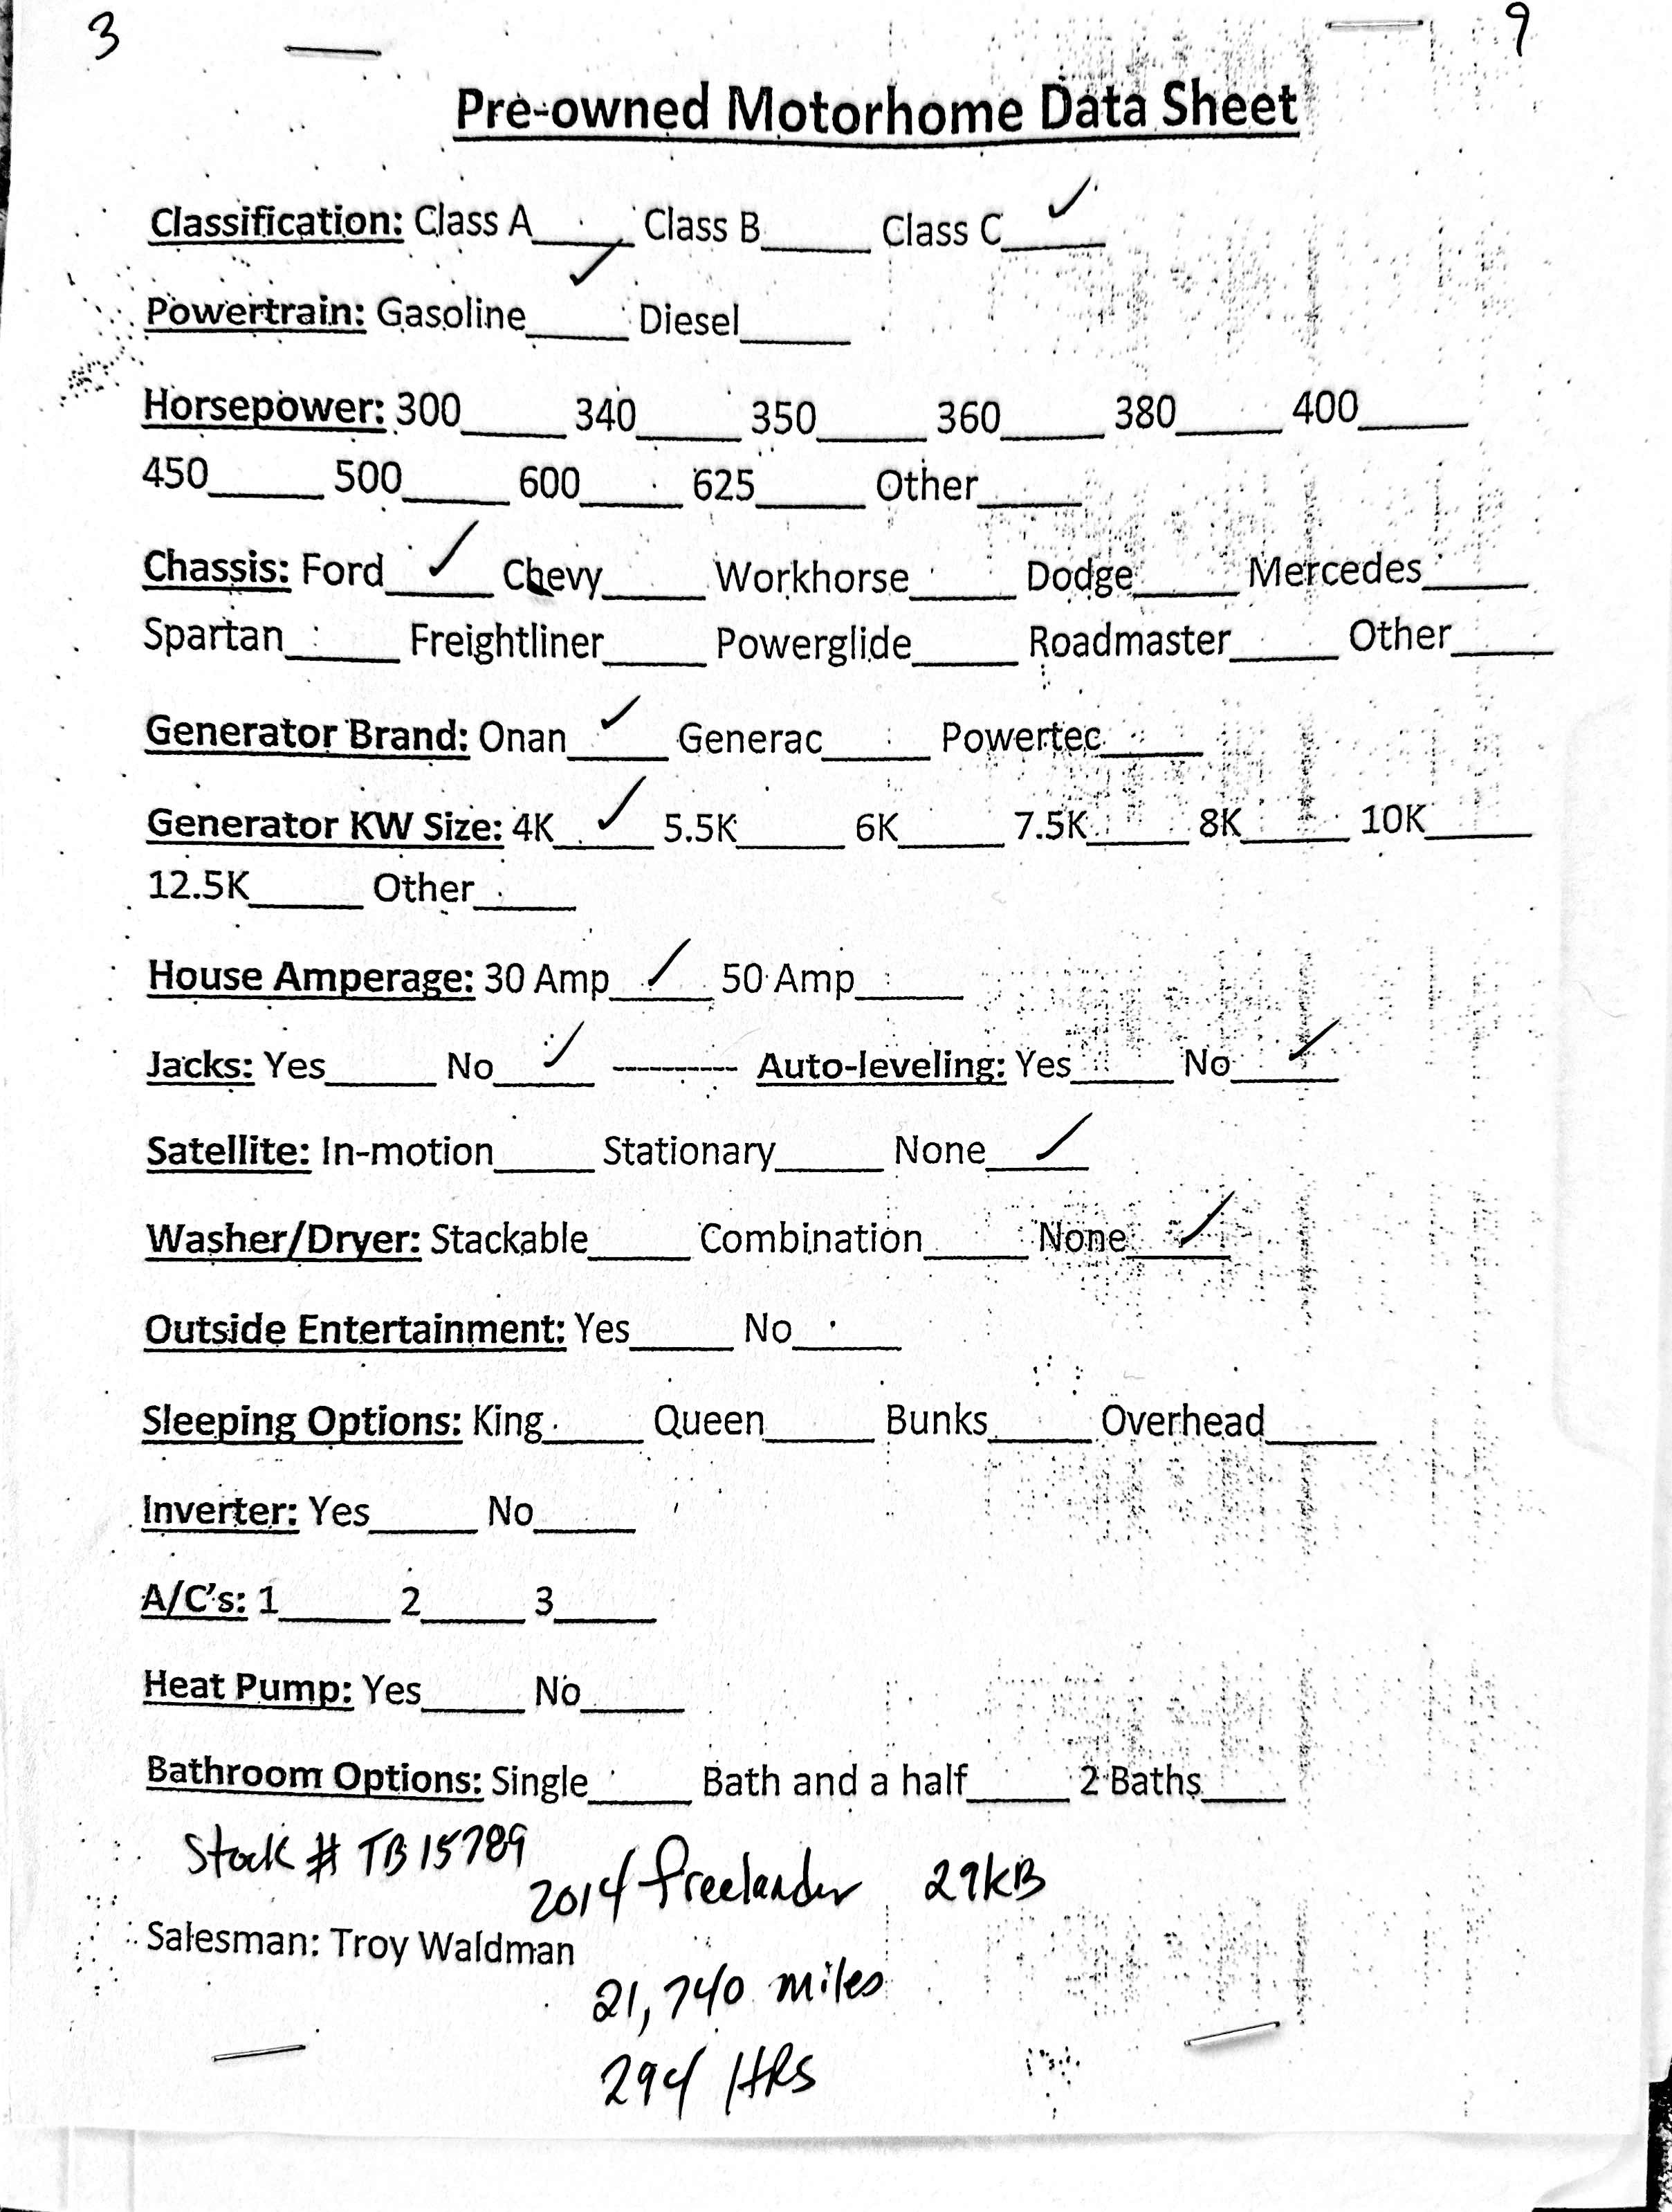 3 9
Pre-owned Motorhome Data Sheet
Classification: Class A_____ Class B_____ Class C__✓__
Powertrain: Gasoline__✓__ Diesel_____
Horsepower: 300_____ 340_____ 350_____ 360_____ 380_____ 400_____
450_____ 500_____ 600_____ 625_____ Other_____
Chassis: Ford__✓__ Chevy_____ Workhorse_____ Dodge_____ Mercedes_____
Spartan_____ Freightliner_____ Powerglide_____ Roadmaster_____ Other_____
Generator Brand: Onan__✓__ Generac_____ Powertec_____
Generator KW Size: 4K__✓__ 5.5K_____ 6K_____ 7.5K_____ 8K_____ 10K_____
12.5K_____ Other_____
House Amperage: 30 Amp__✓__ 50 Amp_____
Jacks: Yes_____ No__✓__ ---------- Auto-leveling: Yes_____ No__✓__
Satellite: In-motion_____ Stationary_____ None__✓__
Washer/Dryer: Stackable_____ Combination_____ None__✓__
Outside Entertainment: Yes_____ No_____
Sleeping Options: King_____ Queen_____ Bunks_____ Overhead_____
Inverter: Yes_____ No_____
A/C's: 1_____ 2_____ 3_____
Heat Pump: Yes_____ No_____
Bathroom Options: Single_____ Bath and a half_____ 2 Baths_____
Stock # TB15789
2014 freelander 29KB
Salesman: Troy Waldman
21,740 miles
294 HRS